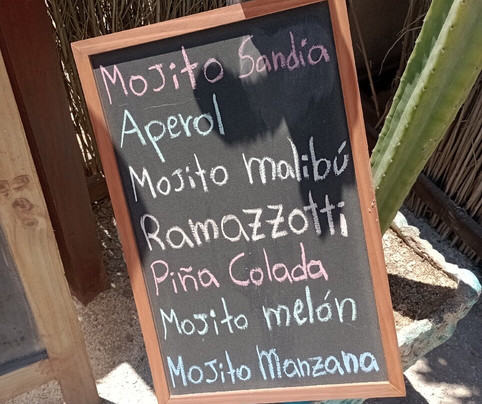 Mojito Sandía
Aperol
Mojito malibú
Ramazzotti
Piña Colada
Mojito melón
Mojito Manzana